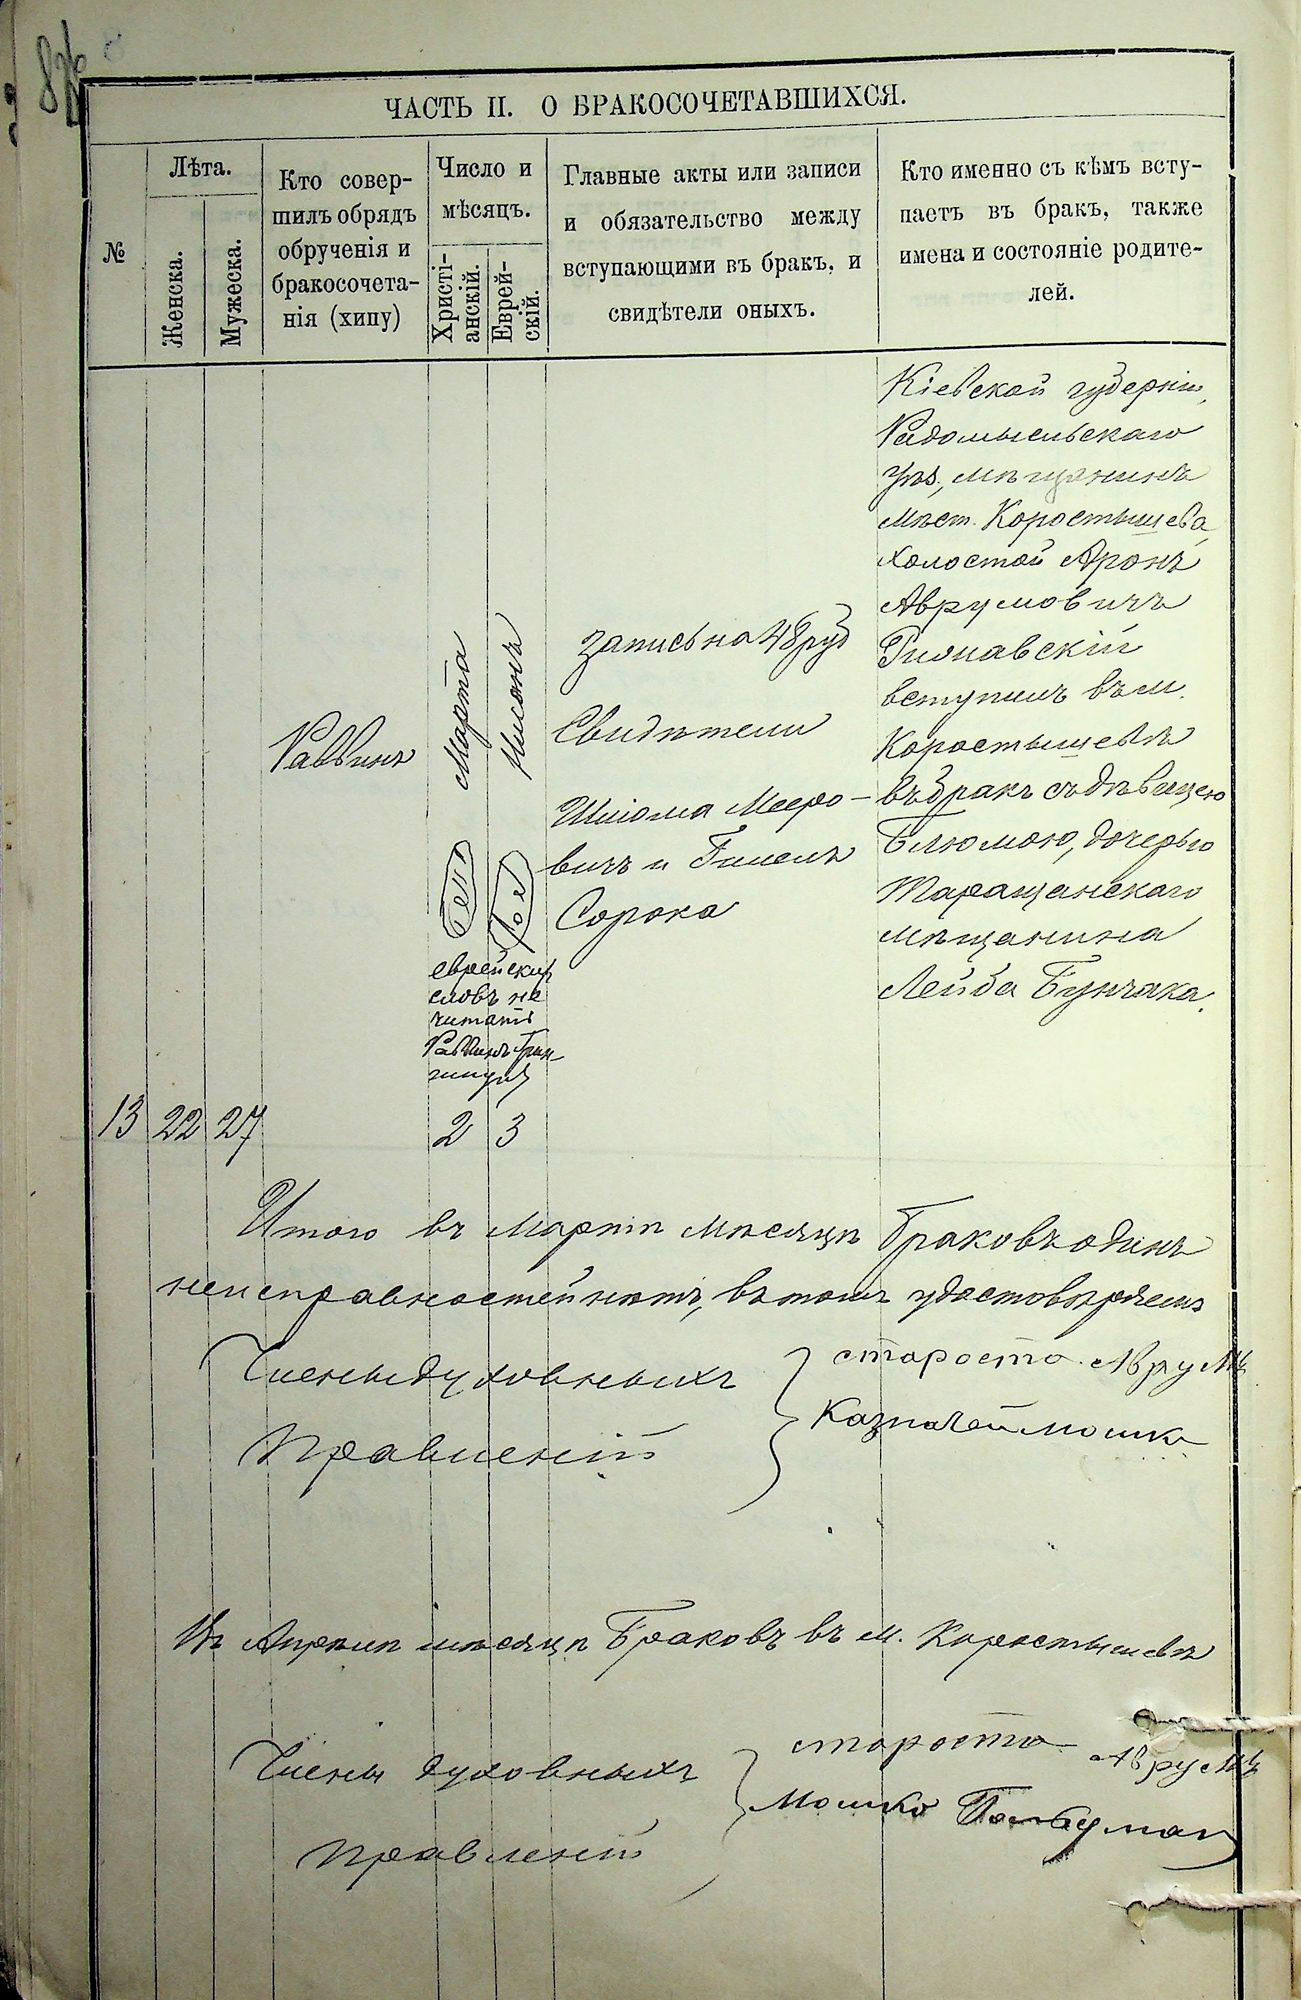 ЧАСТЬ II. О БРАКОСОЧЕТАВШИХСЯ.
№
Лѣта.
Женска.
Мужеска.
Кто совер-
шилъ обрядъ
обрученія и
бракосочета-
нія (хипу)
Число и
мѣсяцъ.
Христі-
анскій.
Еврей-
скій.
Главные акты или записи
и обязательство между
вступающими въ бракъ, и
свидѣтели оныхъ.
Кто именно съ кѣмъ всту-
паетъ въ бракъ, также
имена и состояніе родите-
лей.
13
22
27
Раввинъ
Марта
Нисонъ
еврейскихъ
словъ не
читать
Раввинъ
2
3
запись на 48 руб
Свидѣтели
Шлома Мееро-
вичъ и Гилель
Сорока
Кіевской губерніи,
Радомысльскаго
уѣз., мѣщанинъ
мѣст. Коростышева
холостой Аронъ
Аврумовичъ
вступилъ въ м.
Коростышевѣ
въ бракъ съ дѣвицею
Блюмою, дочерью
Таращанскаго
мѣщанина
Лейба Бунчака.
Итого въ Мартѣ мѣсяцѣ браковъ одинъ
неисправностей нѣтъ, въ томъ удостовѣряемъ
Члены духовныхъ
Правленій
староста Аврумъ
Казначей Мошко
Въ Апрѣлѣ мѣсяцѣ Браковъ въ м. Коростышевѣ
Члены духовныхъ
правленій
староста Аврумъ
Мошко